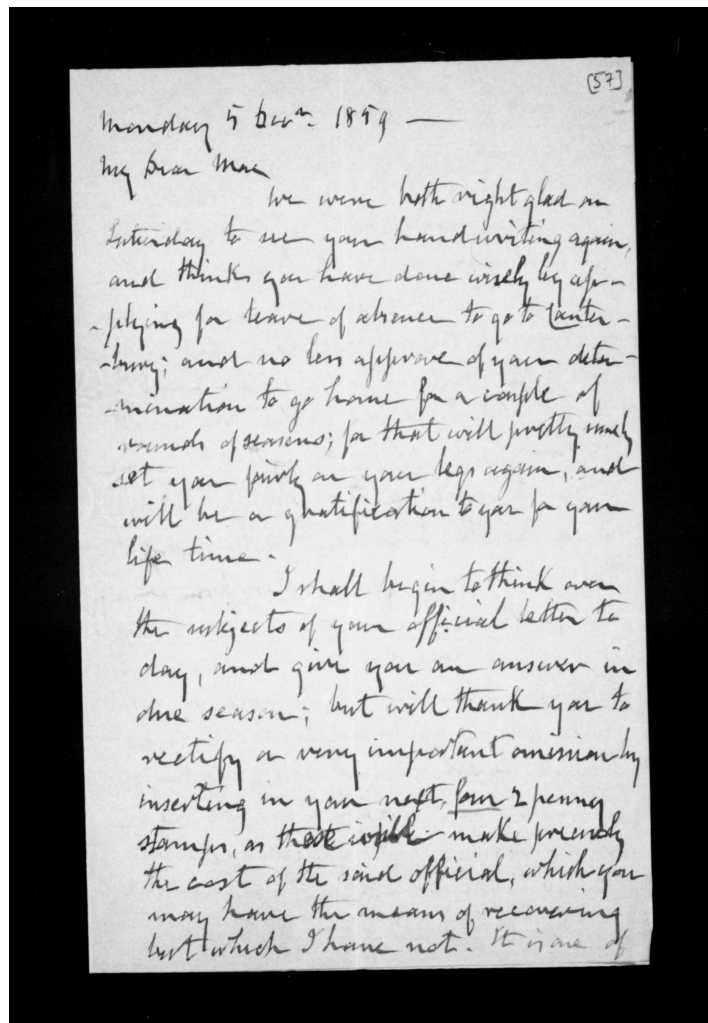 [57]
Monday 5 Decr. 1859 —
My Dear Mac
We were both right glad on
Saturday to see your handwriting again,
and thinks you have done wisely by ap-
-plying for leave of absence to go to Canter-
-bury; and no less approve of your deter-
-mination to go home for a couple of
rounds of seasons; for that will pretty surely
set you fairly on your legs again, and
will be a gratification to you for your
life time.
I shall begin to think over
the subjects of your official letter to
day, and give you an answer in
due season; but will thank you to
rectify a very important omission by
inserting in your next, four 2 penny
stamps, as these will make precisely
the cost of the said official, which you
may have the means of recovering
but which I have not. It is one of